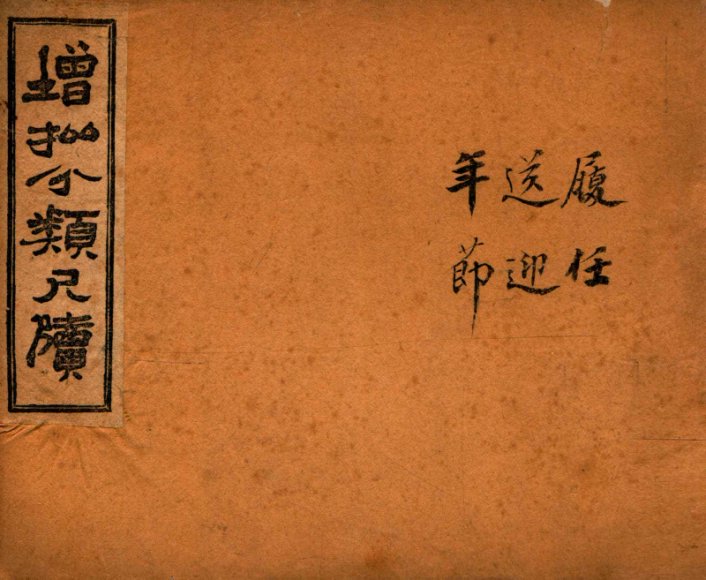 履任
送迎
年節
增批分類尺牘